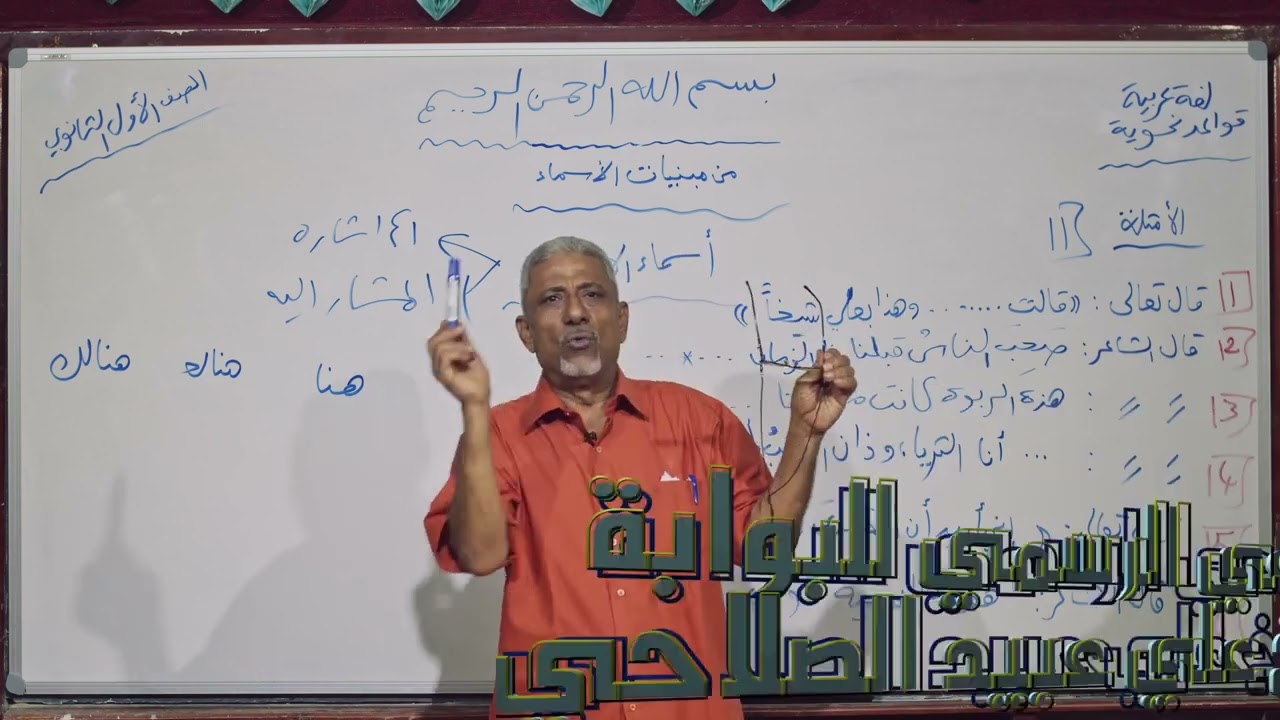 بسم الله الرحمن الرحيم
لغة عربية
قواعد نحوية
الصف الأول الثانوي
من مبنيات الأسماء
الأمثلة
أسماء
اسم اشاره
المشار اليه
هنا هناك هنالك
1 قال تعالى : «قالت ....... وهذا بعلي شيخاً»
2 قال الشاعر : صَحِبَ الناسُ قبلنا ... × ...
3 〃 〃 : هذه الربوة كانت
4 〃 〃 : ... أنا الثريا، وذان
5
الرسمي للبوابة
علي عبيد الصلاحي